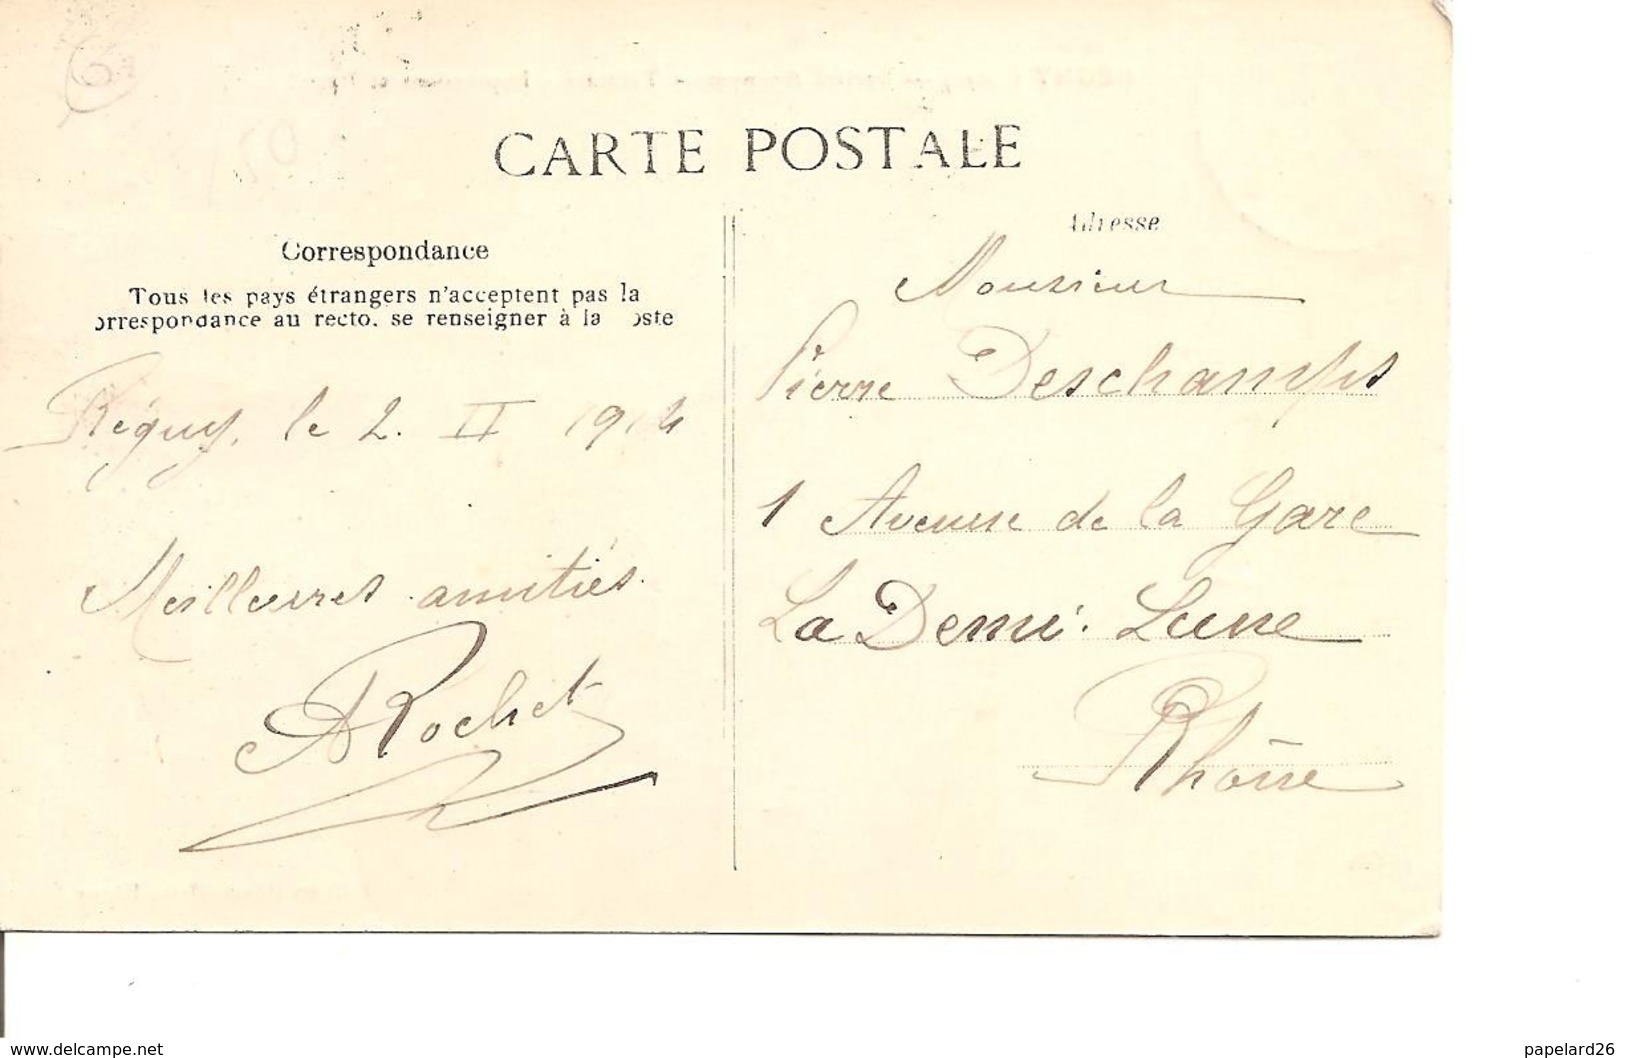 CARTE POSTALE
Correspondance
Tous les pays étrangers n'acceptent pas la
orrespondance au recto. se renseigner à la oste
le 2. II
Meilleures amitiés.
ARochet
Adresse
Monsieur
Pierre Deschamps
1 Avenue de la Gare
La Demi-Lune
Rhône
www.delcampe.net
papelard26